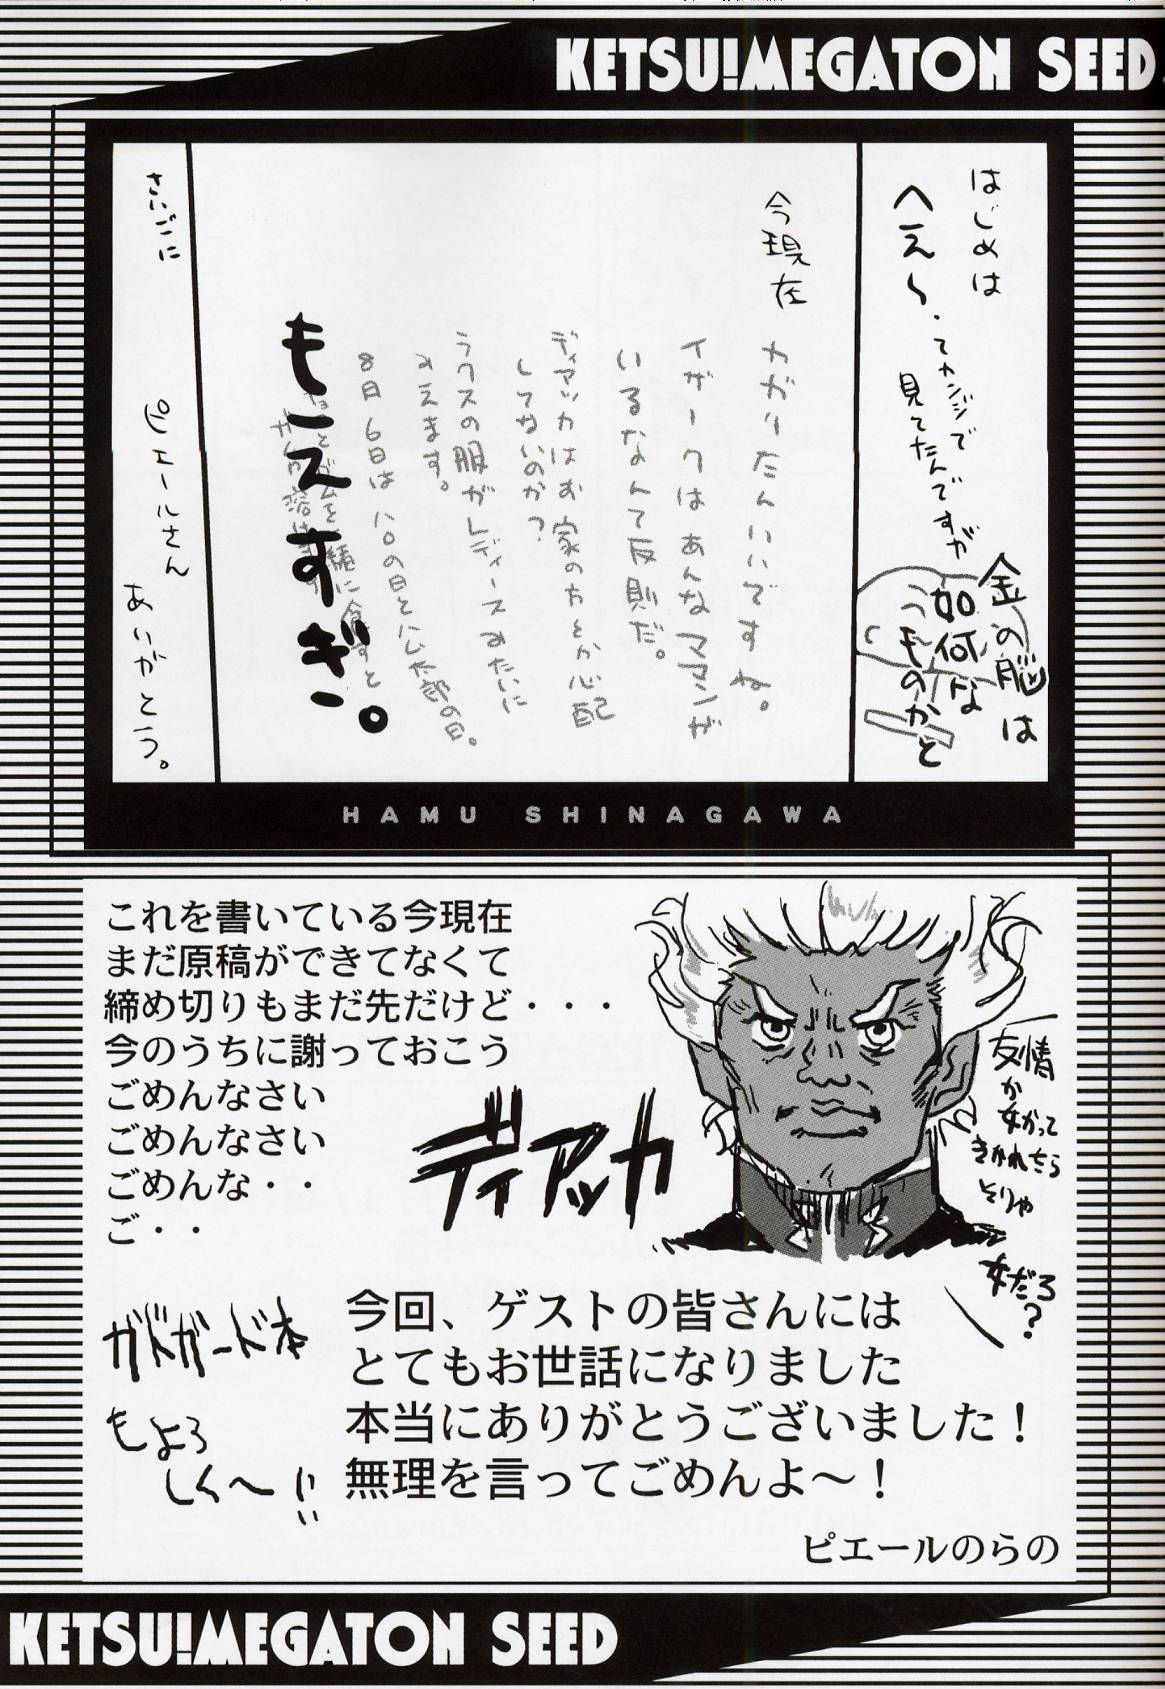 KETSU!MEGATON SEED
はじめは
へえ〜・てカンジで
見てたんですが
金の脳は
如何な
ものかと
今現在
カガリたんいいですね。
イザークはあんなママンが
いるなんて反則だ。
ディアッカはお家の方とか心配
してないのか?
ラクスの服がレディースみたいに
みえます。
8月6日はハロの日とハム太郎の日。
もーえすぎー。
さいごに
ピエールさん
ありがとう。
HAMU SHINAGAWA
これを書いている今現在
まだ原稿ができてなくて
締め切りもまだ先だけど・・・
今のうちに謝っておこう
ごめんなさい
ごめんなさい
ごめんな・・
ご・・
ディアッカ
友情
か
女かって
きかれたら
そりゃ
女だろ?
ガドガード本
もよろ
しく〜!!
今回、ゲストの皆さんには
とてもお世話になりました
本当にありがとうございました!
無理を言ってごめんよ〜!
ピエールのらの
KETSU!MEGATON SEED